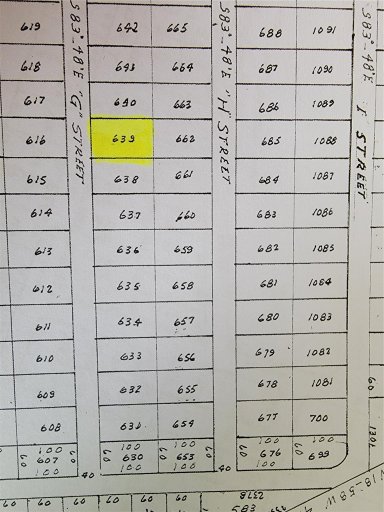 619 642 665 688 1091
618 643 664 687 1090
617 640 663 686 1089
616 639 662 685 1088
615 638 661 684 1087
614 637 660 683 1086
613 636 659 682 1085
612 635 658 681 1084
611 634 657 680 1083
610 633 656 679 1082
609 632 655 678 1081
608 631 654 677 700
100 100 100 100 100
607 630 653 676 699
100 100 100 100 100
S83°-48'E "G" STREET
S83°-48'E "H" STREET
S83°-48'E I STREET
60 60 60 60 60
40 40
60 60 60 60 60
2378
583
N18-58W
60
1306